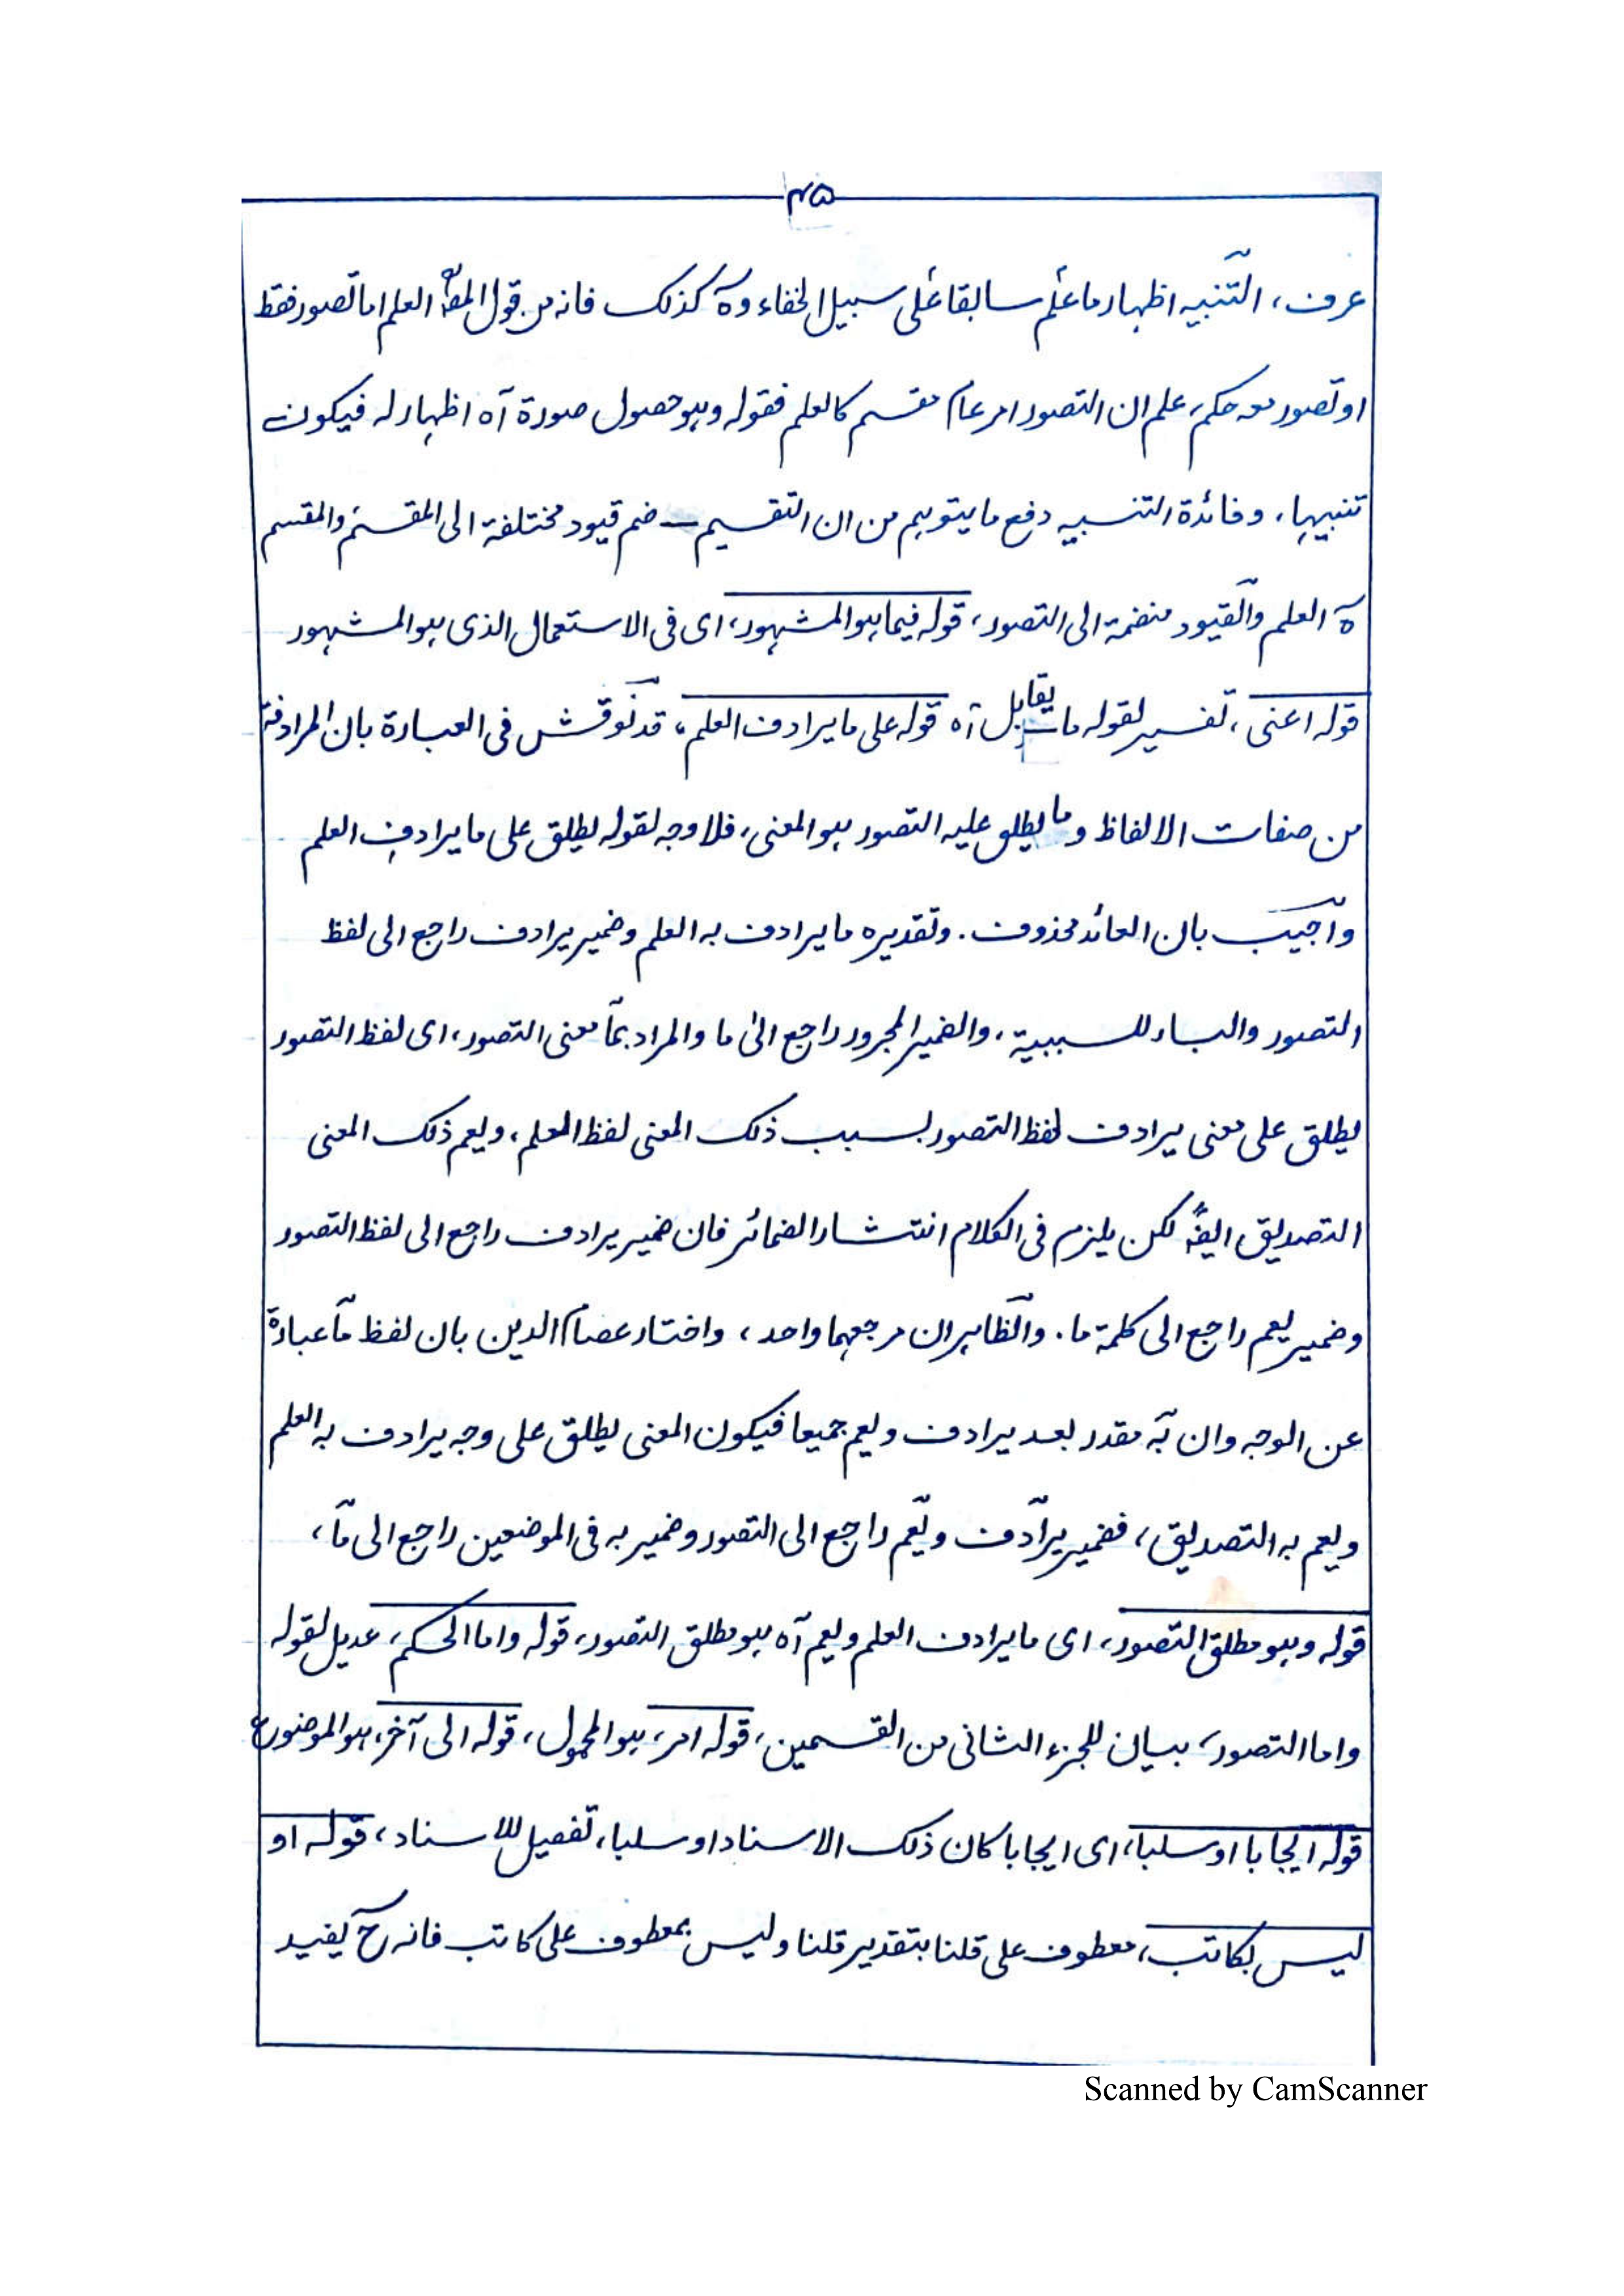 ٤٥
عرف، التنبيه اظهار ما علم سابقا على سبيل الخفاء وه كذلك فانه من قول المصـ العلم اما تصور فقط
او تصور معه حكم، علم ان التصور امر عام مقسم كالعلم فقوله وهو حصول صورة آه اظهار له فيكون
تنبيها، وفائدة التنبيه دفع ما يتوهم من ان التقسيم ضم قيود مختلفة الى المقسم والمقسم
ه العلم والقيود منضمة الى التصور، قوله فيما هو المشهور، اى فى الاستعمال الذى هو المشهور
قوله اعنى، تفسير لقوله ما يقابل آه قوله على ما يرادف العلم، قد نوقش فى العبارة بان المرادفة
من صفات الالفاظ وما يطلق عليه التصور هو المعنى، فلا وجه لقوله يطلق على ما يرادف العلم
واجيب بان العائد محذوف. وتقديره ما يرادف به العلم وضمير يرادف راجع الى لفظ
التصور والباء للسببية، والضمير المجرور راجع الى ما والمراد بما معنى التصور، اى لفظ التصور
يطلق على معنى يرادف لفظ التصور بسبب ذلك المعنى لفظ العلم، ويعم ذلك المعنى
التصديق ايضً لكن يلزم فى الكلام انتشار الضمائر فان ضمير يرادف راجع الى لفظ التصور
وضمير يعم راجع الى كلمة ما. والظاهر ان مرجعهما واحد، واختار عصام الدين بان لفظ ما عبارة
عن الوجه وان به مقدر بعد يرادف ويعم جميعا فيكون المعنى يطلق على وجه يرادف به العلم
ويعم به التصديق، فضمير يرادف ويعم راجع الى التصور وضمير به فى الموضعين راجع الى ما،
قوله وهو مطلق التصور، اى ما يرادف العلم ويعم آه هو مطلق التصور، قوله واما الحكم، عديل لقوله
واما التصور، بيان للجزء الثانى من القسمين، قوله امر، هو المحمول، قوله الى آخر، هو الموضوع
قوله ايجابا او سلبا، اى ايجابا كان ذلك الاسناد او سلبا، تفصيل للاسناد، قوله او
ليس بكاتب، معطوف على قلنا بتقدير قلنا وليس بمعطوف على كاتب فانه ح يفيد
Scanned by CamScanner